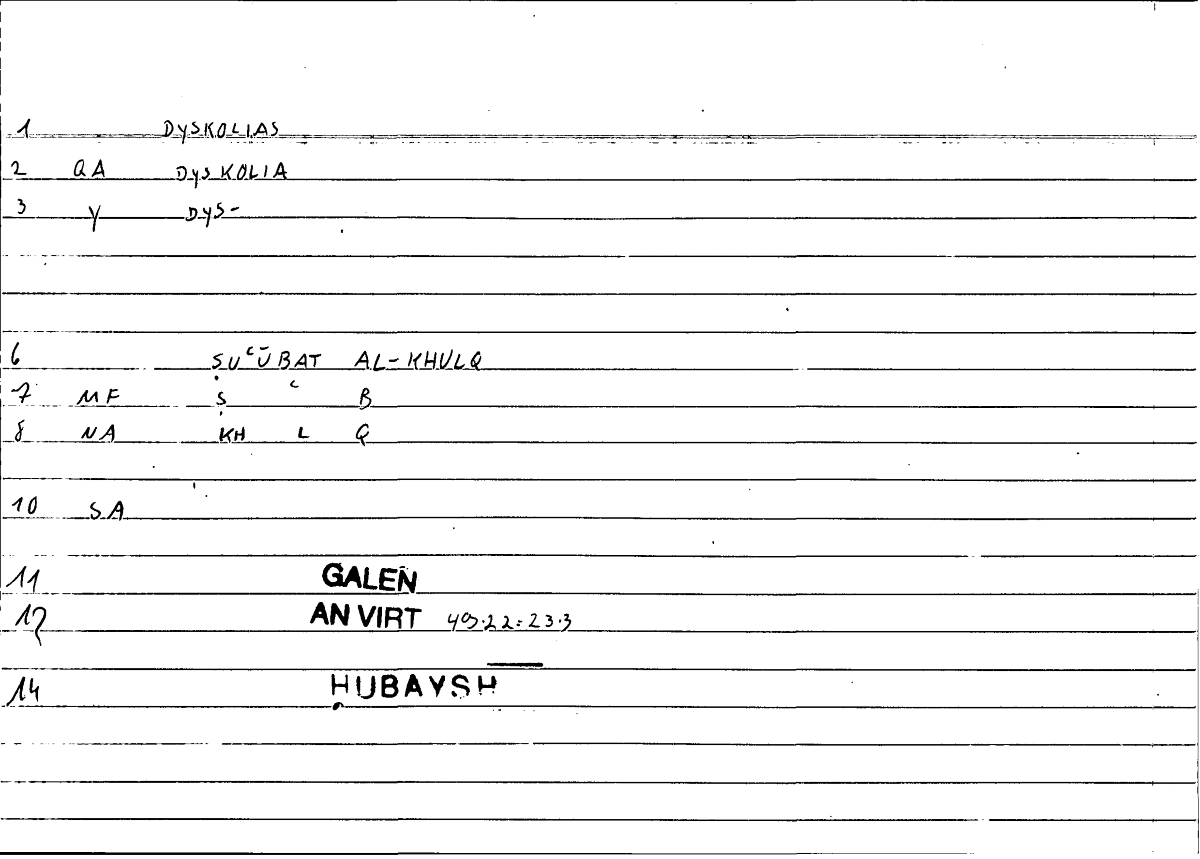 1 DYSKOLIAS
2 QA DYSKOLIA
3 Y DYS-
6 ṢUʿŪBAT AL-KHULQ
7 MF Ṣ ʿ B
8 NA KH L Q
10 SA
11 GALEN
12 AN VIRT 49.22=23.3
14 ḤUBAYSH